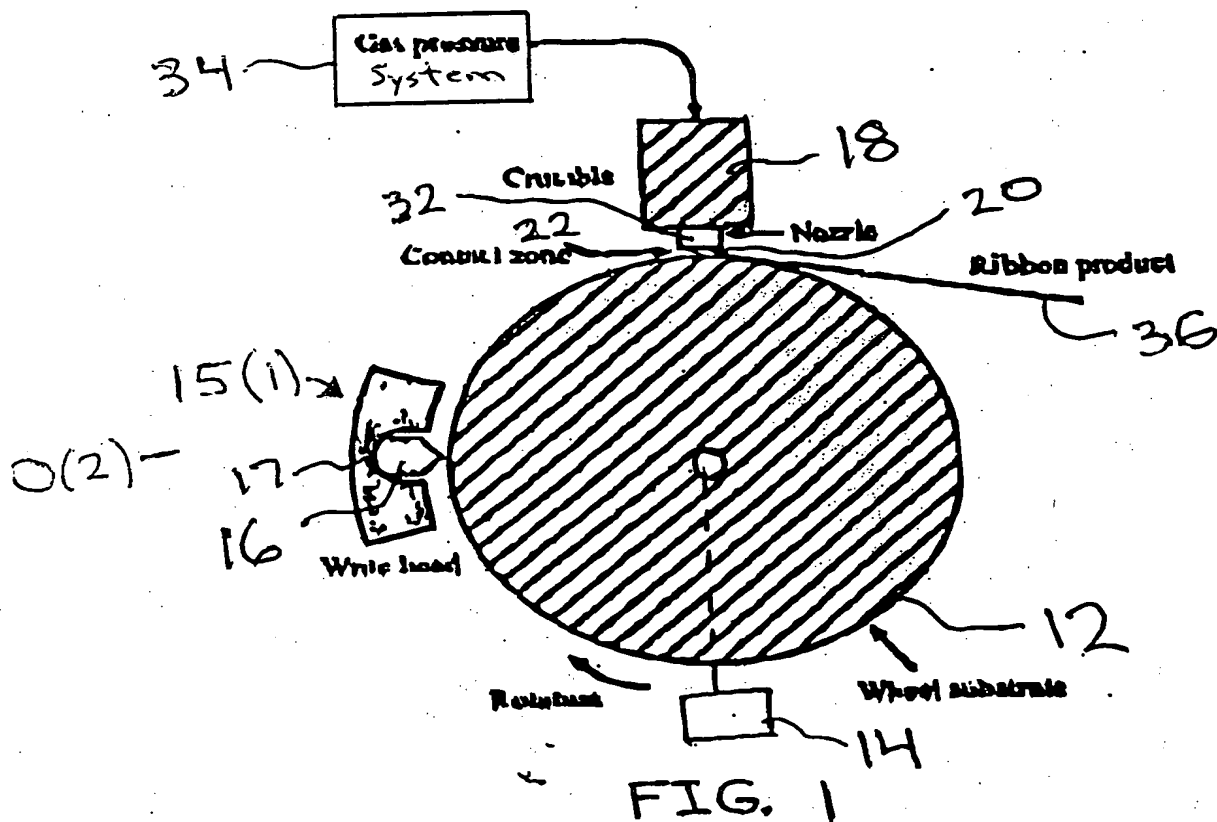 Gas pressure
System
34
18
Crucible
32
20
22
Nozzle
Contact zone
Ribbon product
36
15(1)
0(2)
17
16
Write head
12
Wheel substrate
Rotation
14
FIG. 1